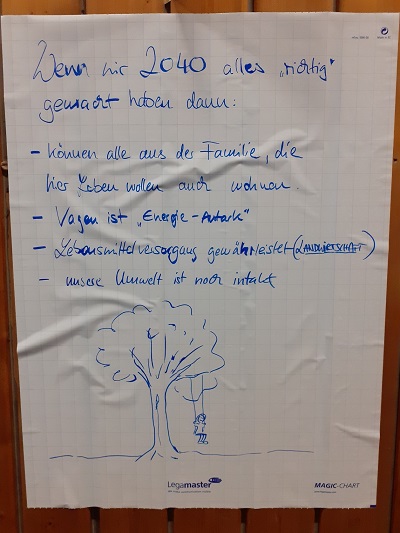 Wenn wir 2040 alles „richtig"
gemacht haben dann:
- können alle aus der Familie, die
hier Leben wollen auch wohnen.
- Vagen ist „Energie-Autark"
- Lebensmittelversorgung gewährleistet (LANDWIRTSCHAFT)
- unsere Umwelt ist noch intakt
Legamaster
MAGIC-CHART